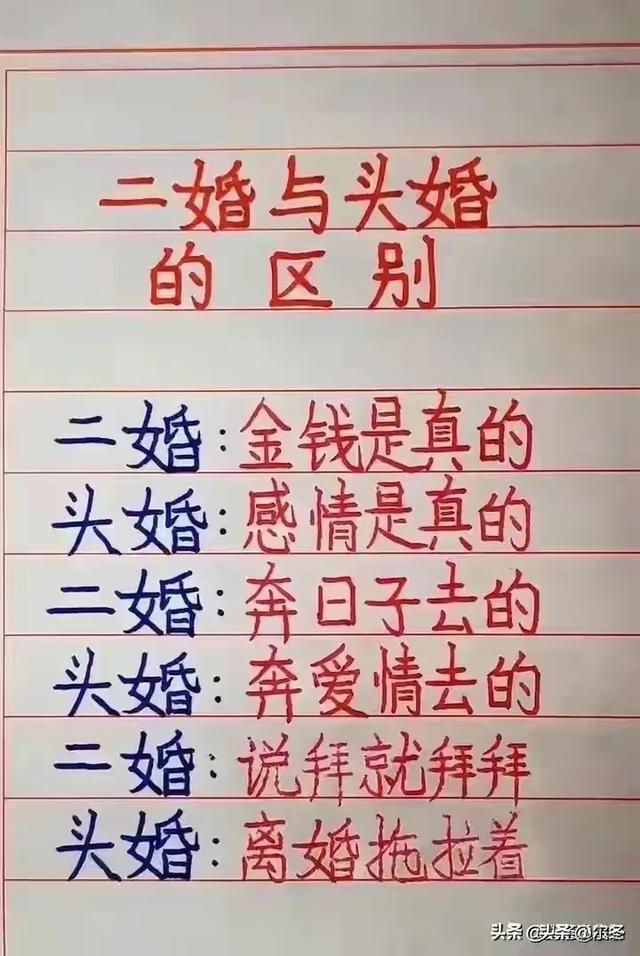 二婚与头婚
的区别
二婚:金钱是真的
头婚:感情是真的
二婚:奔日子去的
头婚:奔爱情去的
二婚:说拜就拜拜
头婚:离婚拖拉着
头条@尔冬